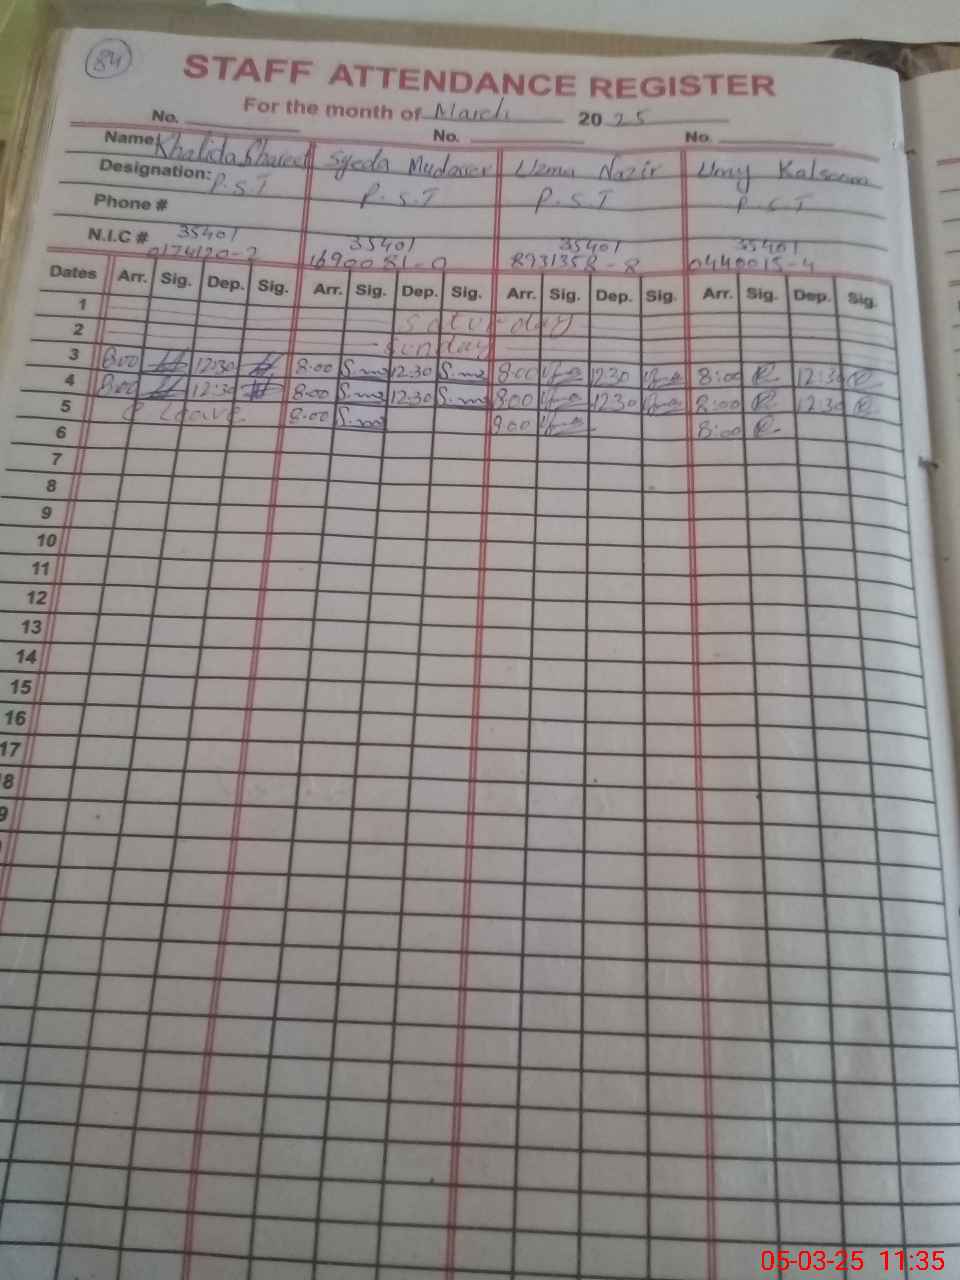 84
STAFF ATTENDANCE REGISTER
For the month of March 2025
No. No. No.
Name Khalida Syeda Mudasar Uzma Nazir Umy Kalsoom
Designation: P.S.T P.S.T P.S.T P.S.T
Phone #
N.I.C # 35401 35401 35401 35401
0174120-2 1690081-0 8931358-8 0440015-4
Dates Arr. Sig. Dep. Sig. Arr. Sig. Dep. Sig. Arr. Sig. Dep. Sig. Arr. Sig. Dep. Sig.
1 Saturday
2 Sunday
3 8:00 12:30 8:00 S.m 12:30 S.m 8:00 12:30 8:00 12:30
4 8:00 12:30 8:00 S.m 12:30 S.m 8:00 12:30 8:00 12:30
5 Leave 8:00 S.m 8:00 8:00
6
7
8
9
10
11
12
13
14
15
16
17
8
9
05-03-25 11:35